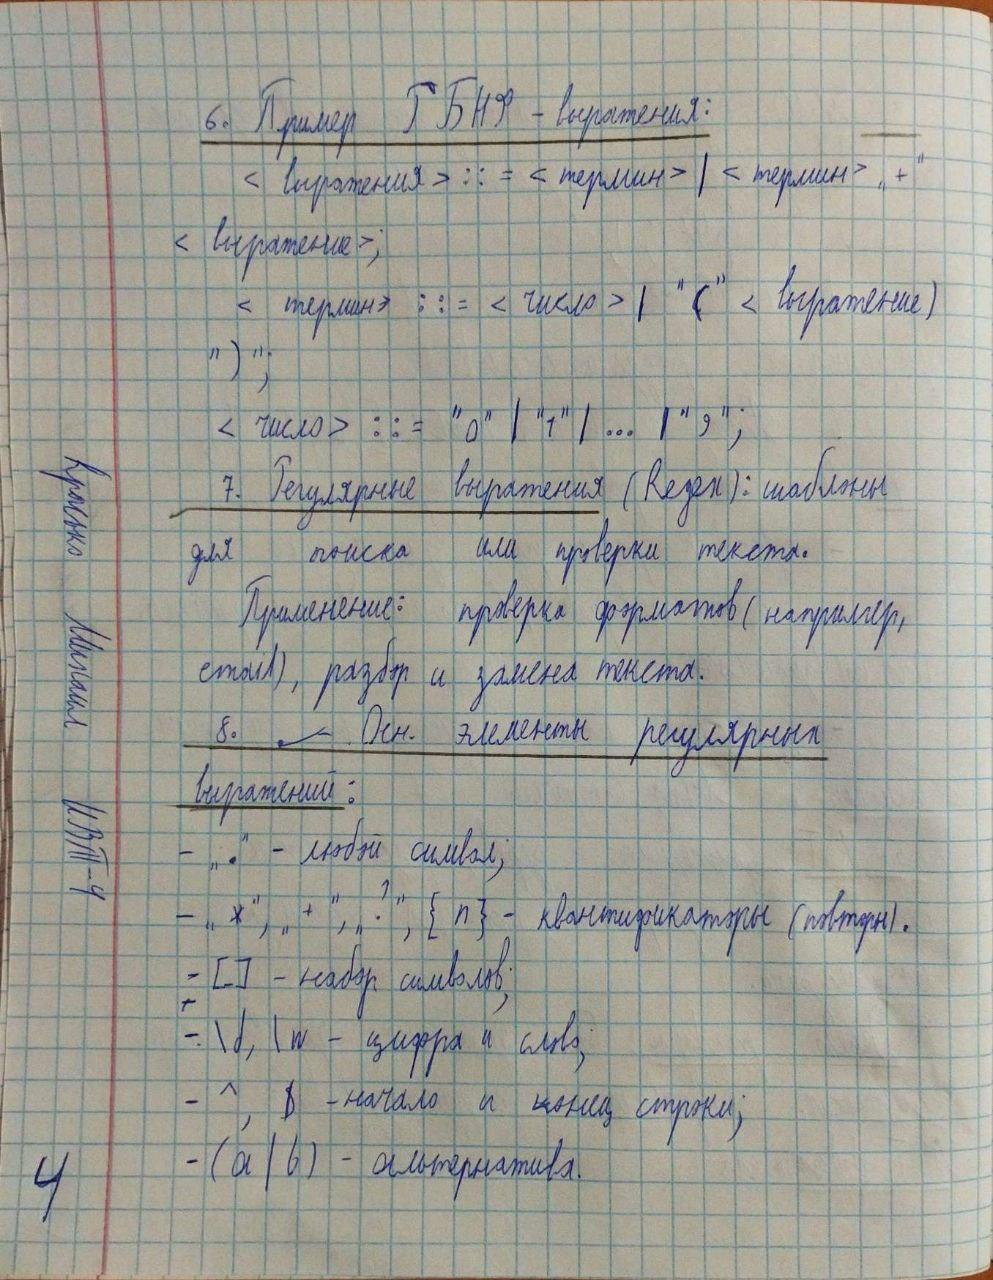 6. Пример ГБНФ - выражения:
< выражения > :: = < термин > | < термин > „+"
< выражение >;
< термин> :: = < число > | "(" < выражение)
")";
< число > :: = "0" | "1" | ... | "9";
7. Регулярные выражения (Regex): шаблоны
для поиска или проверки текста.
Применение: проверка форматов (например,
email), разбор и замена текста.
8. Осн. элементы регулярных
выражений:
- „." - любой символ;
- „*", „+", „?", {n} - квантификаторы (повторы).
- [-] - набор символов;
- \d, \w - цифра и слово;
- ^, $ - начало и конец строки;
- (a|b) - альтернатива.
Михаил ИВТ-4
4